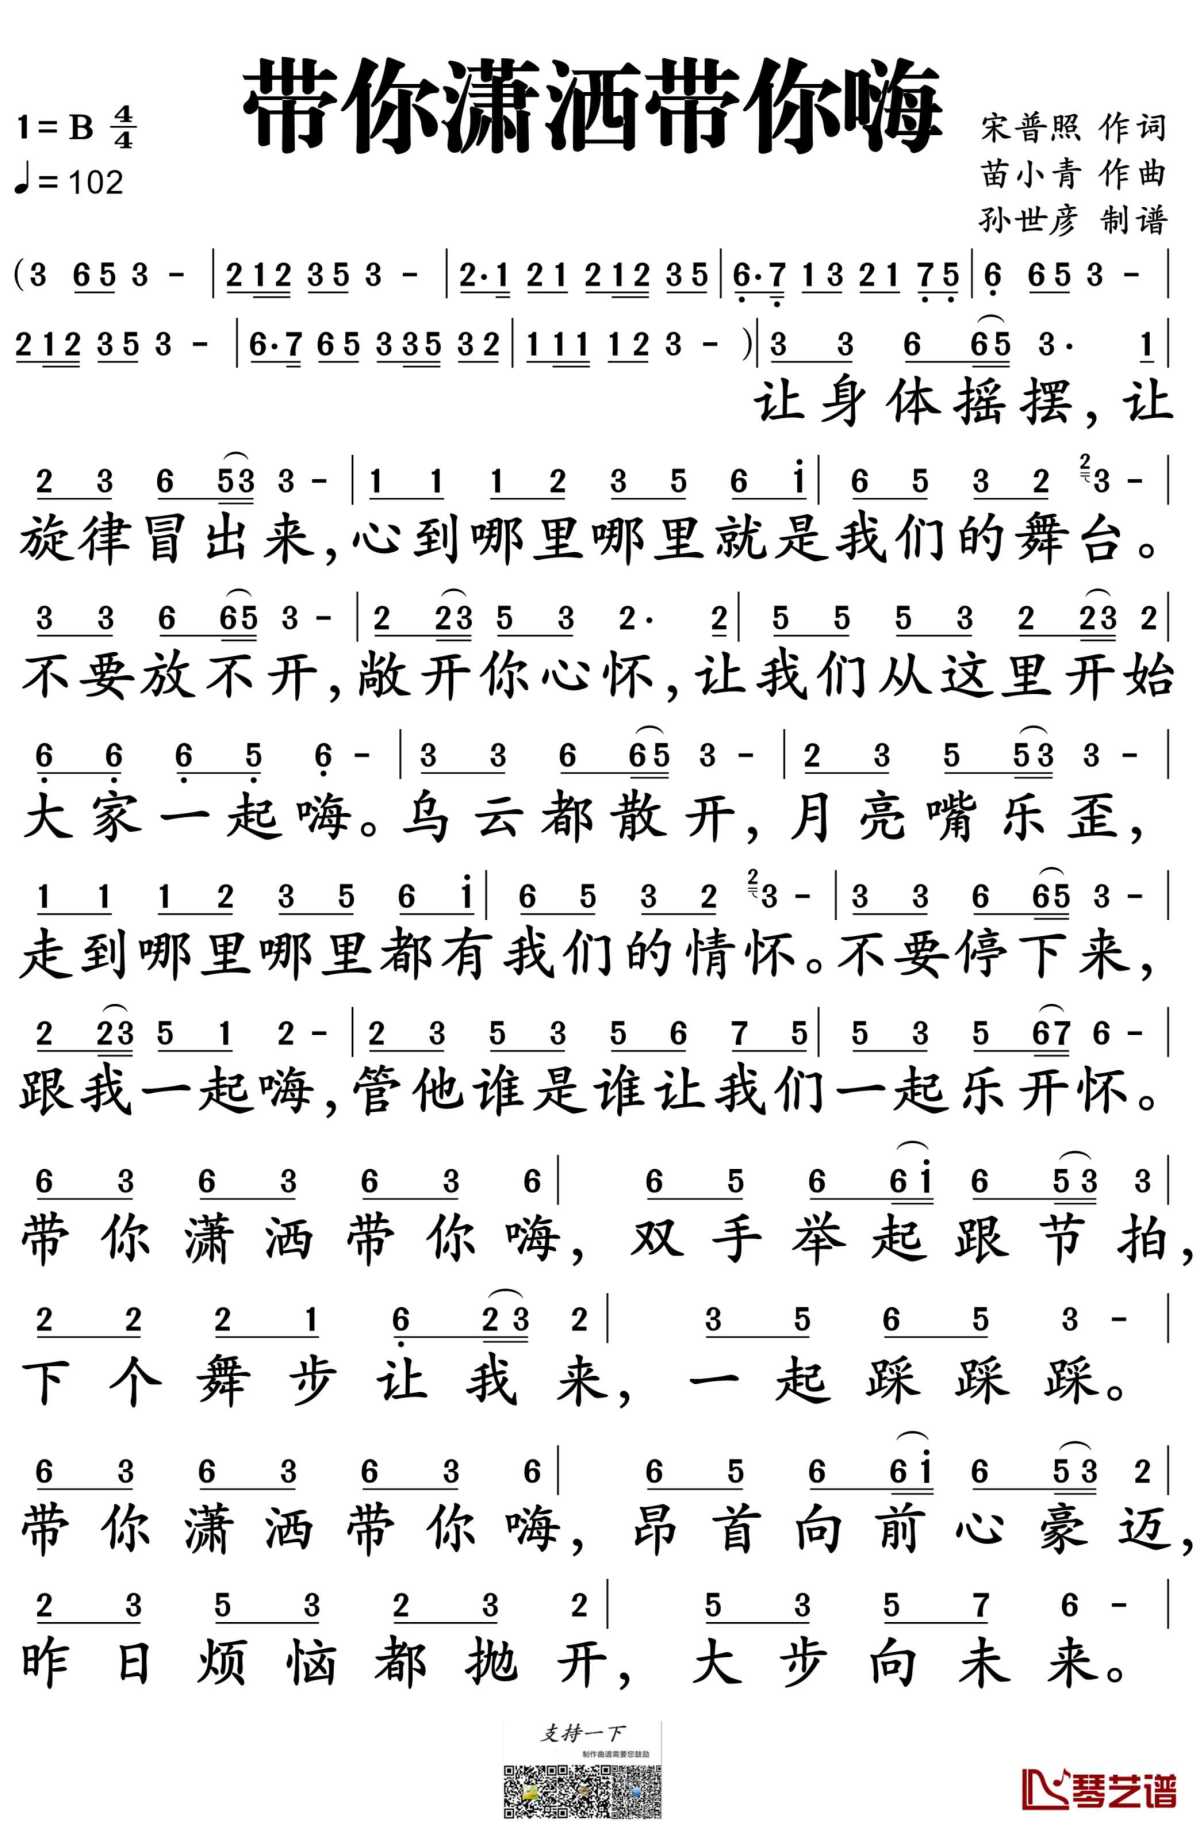 带你潇洒带你嗨
1=B 4/4
♩=102
宋普照 作词
苗小青 作曲
孙世彦 制谱
(3 65 3 - | 212 35 3 - | 2·1 21 212 35 | 6·7 13 21 75 | 6 65 3 - |
212 35 3 - | 6·7 65 335 32 | 111 12 3 - )| 3 3 6 65 3· 1 |
让身体摇摆,让
2 3 6 53 3 - | 1 1 1 2 3 5 6 i | 6 5 3 2 23 - |
旋律冒出来,心到哪里哪里就是我们的舞台。
3 3 6 65 3 - | 2 23 5 3 2· 2 | 5 5 5 3 2 23 2 |
不要放不开,敞开你心怀,让我们从这里开始
6 6 6 5 6 - | 3 3 6 65 3 - | 2 3 5 53 3 - |
大家一起嗨。乌云都散开,月亮嘴乐歪,
1 1 1 2 3 5 6 i | 6 5 3 2 23 - | 3 3 6 65 3 - |
走到哪里哪里都有我们的情怀。不要停下来,
2 23 5 1 2 - | 2 3 5 3 5 6 7 5 | 5 3 5 67 6 - |
跟我一起嗨,管他谁是谁让我们一起乐开怀。
6 3 6 3 6 3 6 | 6 5 6 6i 6 53 3 |
带你潇洒带你嗨,双手举起跟节拍,
2 2 2 1 6 23 2 | 3 5 6 5 3 - |
下个舞步让我来,一起踩踩踩。
6 3 6 3 6 3 6 | 6 5 6 6i 6 53 2 |
带你潇洒带你嗨,昂首向前心豪迈,
2 3 5 3 2 3 2 | 5 3 5 7 6 - |
昨日烦恼都抛开,大步向未来。
支持一下
制作曲谱需要您鼓励
琴艺谱